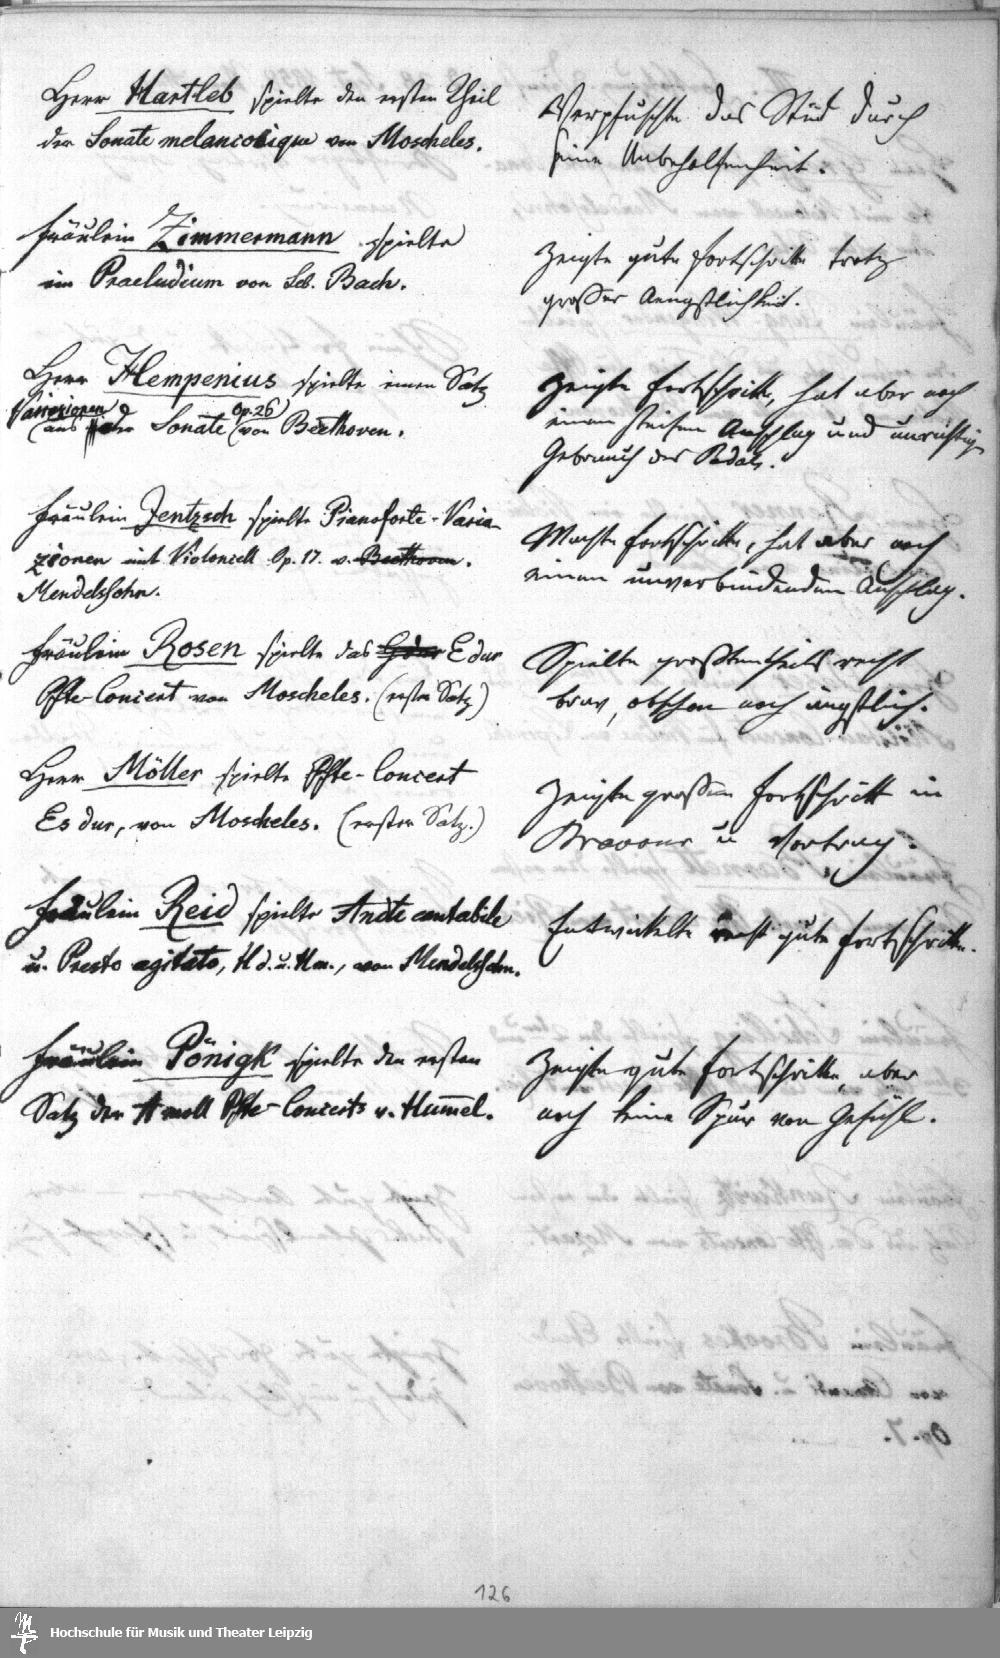 Herr Hartleb spielte den ersten Theil
der Sonate melancolique von Moscheles.
Verpfuschte das Stück durch
seine Unbeholfenheit.
Fräulein Zimmermann spielte
ein Praeludium von Seb. Bach.
Zeigte gute Fortschritte trotz
grosser Aengstlichkeit.
Herr Hempenius spielte einen Satz
Variazionen Op. 26
(aus der Sonate (von Beethoven.
Zeigte Fortschritte, hat aber noch
einen steifen Anschlag und unrichtigen
Gebrauch des Pedals.
Fräulein Jentzsch spielte Pianoforte-Varia-
zionen mit Violoncell Op. 17. v. Beethoven.
Mendelssohn.
Machte Fortschritte, hat aber noch
einen unverbindenden Anschlag.
Fräulein Rosen spielte das Gdur E dur
Pfte-Concert von Moscheles. (erster Satz)
Spielte großtentheils recht
brav, obschon noch ängstlich.
Herr Möller spielte Pfte-Concert
Es dur, von Moscheles. (erster Satz.)
Zeigte großen Fortschritt in
Bravour u Vortrag.
Fräulein Reid spielte Andte cantabile
u. Presto agitato, H d. u. H m., von Mendelssohn.
Entwickelte recht gute Fortschritte.
Fräulein Pönigk spielte den ersten
Satz des A moll Pfte-Concerts v. Hummel.
Zeigte gute Fortschritte, aber
noch keine Spur von Gefühl.
126
Hochschule für Musik und Theater Leipzig